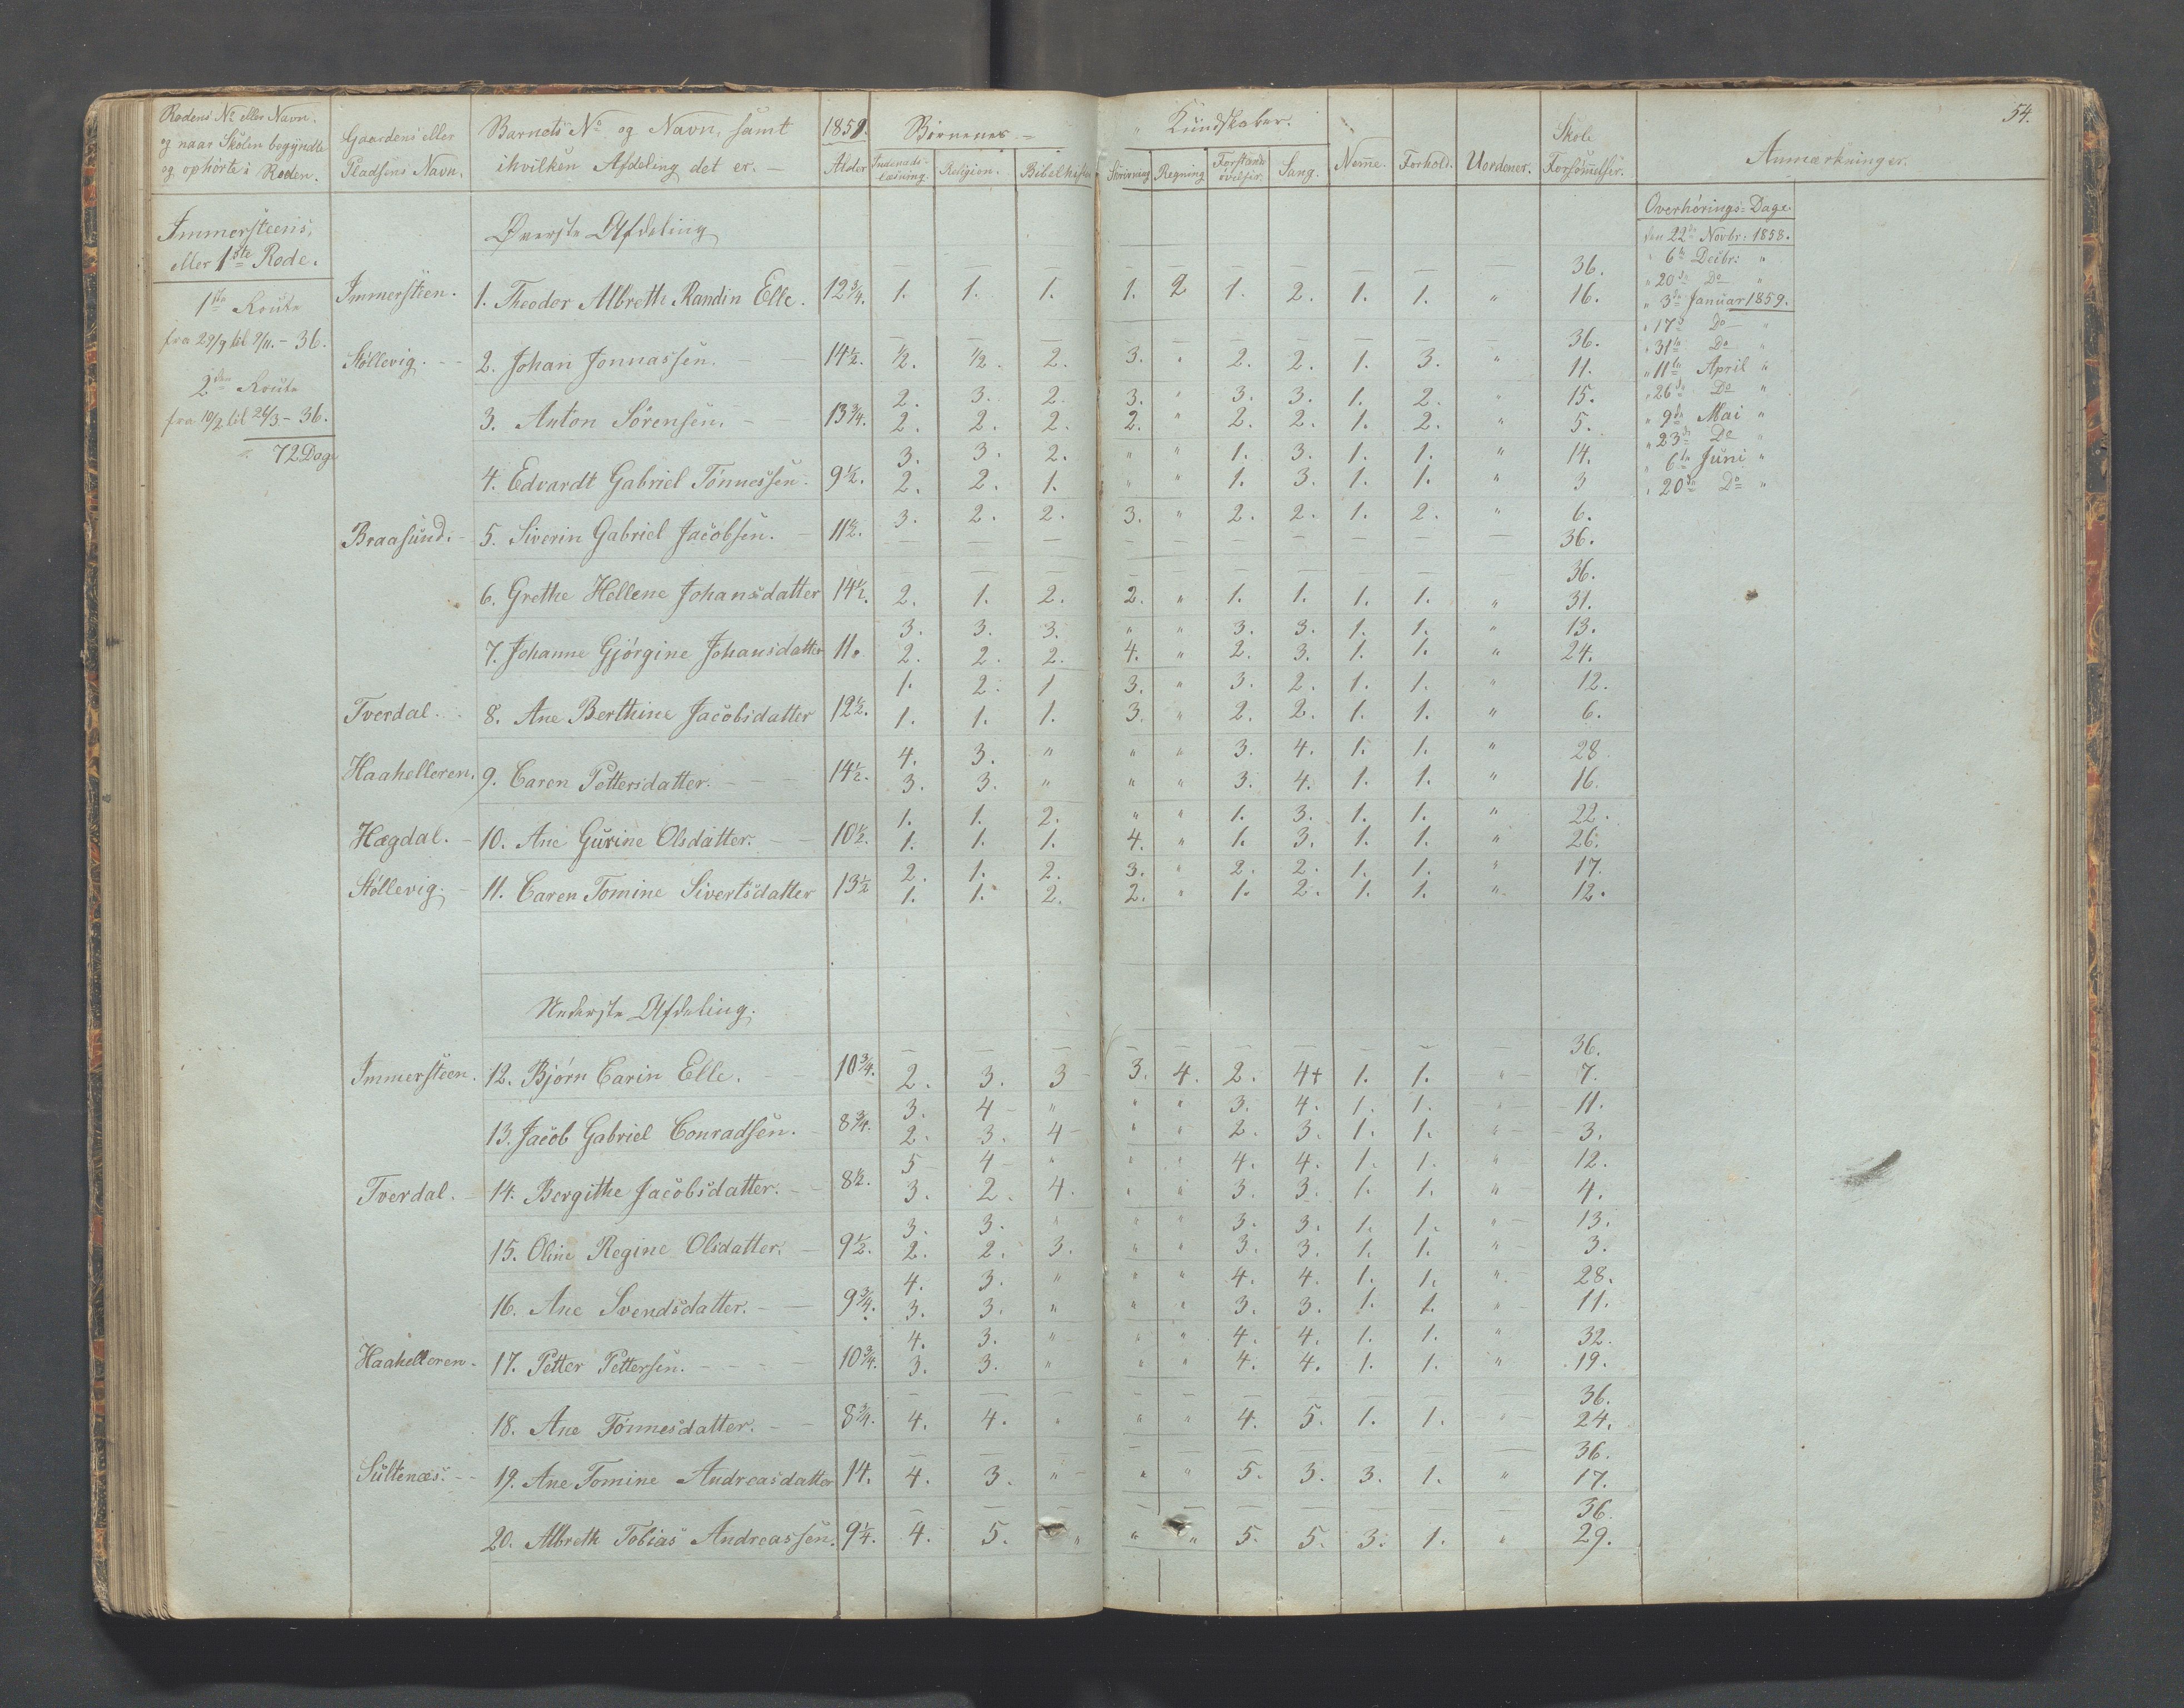 54.
Rodens No eller Navn. og naar Skolen begyndte og ophørte i Roden.
Gaardens eller Pladsens Navn.
Barnets No og Navn, samt ihvilken Afdeling det er. –
1859. Alder
Børnenes –
Indenads-læsning. Religion. Bibelhist.
" Kundskaber.
Skrivning Regning Forstands øvelser. Sang.
Nemme. Forhold. Uordener. Skole Forsømmelser. Anmærkninger.
Immersteens, eller 1ste Rode.
1ste Route
fra 29/9 til 9/11. – 36.
2den Route
fra 10/2 til 26/3 – 36.
72 Dage
Overhørings-Dage.
den 22de Novbr: 1858.
" 6te Decbr: "
" 20de Do "
" 3de Januar 1859.
" 17de Do "
" 31te Do "
" 11te April "
" 26de Do "
" 9de Mai "
" 23de Do "
" 6te Juni "
" 20de Do "
Øverste Afdeling
— — — — — — — — — — 36.
Immersteen. 1. Theodor Albreth Randin Elle. 12 3/4. 1. 1. 1. 1. 2 1. 2. 1. 1. " 16.
— — — — — — — — — — 36.
Støllevig. 2. Johan Jonnassen. 14 1/2. 1/2. 1/2. 2. 3. " 2. 2. 1. 3. " 11.
2. 3. 2. 3. " 3. 3. 1. 2. " 15.
3. Anton Sørensen. 13 3/4. 2. 2. 2. 2. " 2. 2. 1. 2. " 5.
3. 3. 2. " " 1. 3. 1. 1. " 14.
4. Edvardt Gabriel Tønnessen. 9 1/2. 2. 2. 1. " " 1. 3. 1. 1. " 3
3. 2. 2. 3. " 2. 2. 1. 2. " 6.
Braasund. 5. Siverin Gabriel Jacobsen. 11 1/2. — — — — — — — — — — 36.
— — — — — — — — — — 36.
6. Grethe Hellene Johansdatter 14 1/2. 2. 1. 2. 2. " 1. 1. 1. 1. " 31.
3. 3. 3. " " 3. 3. 1. 1. " 13.
7. Johanne Gjørgine Johansdatter 11. 2. 2. 2. 4. " 2. 3. 1. 1. " 24.
1. 2. 1 3. " 3. 2. 1. 1. " 12.
Tverdal. 8. Ane Berthine Jacobsdatter 12 1/2. 1. 1. 1. 3. " 2. 2. 1. 1. " 6.
4. 3. " " " 3. 4. 1. 1. " 28
Haahelleren. 9. Caren Pettersdatter. 14 1/2. 3. 3. " " " 3. 4. 1. 1. " 16.
1. 1. 2. " " 1. 3. 1. 1. " 22.
Hægdal. 10. Ane Gurine Olsdatter. 10 1/2. 1. 1. 1. 4. " 1. 3. 1. 1. " 26.
2. 1. 2. 3. " 2. 2. 1. 1. " 17.
Støllevig. 11. Caren Tomine Sivertsdatter 13 1/2 1. 1. 2. 2. " 1. 2. 1. 1. " 12.
Nederste Afdeling.
— — — — — — — — — — 36.
Immersteen. 12. Bjørn Carin Elle. 10 3/4. 2. 3. 3 3. 4. 2. 4+ 1. 1. " 7.
3. 4 " " " 3. 4. 1. 1. " 11.
13. Jacob Gabriel Conradsen. 8 3/4. 2. 3. 4 " " 2. 3. 1. 1. " 3.
5 4 " " " 4. 4. 1. 1. " 12.
Tverdal. 14. Bergithe Jacobsdatter. 8 1/2. 3. 2. 4. " " 3. 3. 1. 1. " 4.
3. 3. " " " 3. 3. 1. 1. " 13.
15. Oline Regine Olsdatter. 9 1/2. 2. 2. 3. " " 3. 3. 1. 1. " 3.
4. 3. " " " 4. 4. 1. 1. " 28.
16. Ane Svendsdatter. 9 3/4. 3. 3. " " " 3. 3. 1. 1. " 11.
4. 3. " " " 4. 4. 1. 1. " 32.
Haahelleren. 17. Petter Pettersen. 10 3/4. 3. 3. " " " 4. 4. 1. 1. " 19.
— — — — — — — — — — 36.
18. Ane Tønnesdatter. 8 3/4. 4. 4. " " " 4. 5. 1. 1. " 24.
— — — — — — — — — — 36.
Sultenæs. 19. Ane Tomine Andreasdatter 14. 4. 3. " " " 5. 3. 3. 1. " 17.
— — — — — — — — — — 36.
20. Albreth Tobias Andreassen. 9 1/4. 4. 5. " " " 5. 5. 3. 1. " 29.